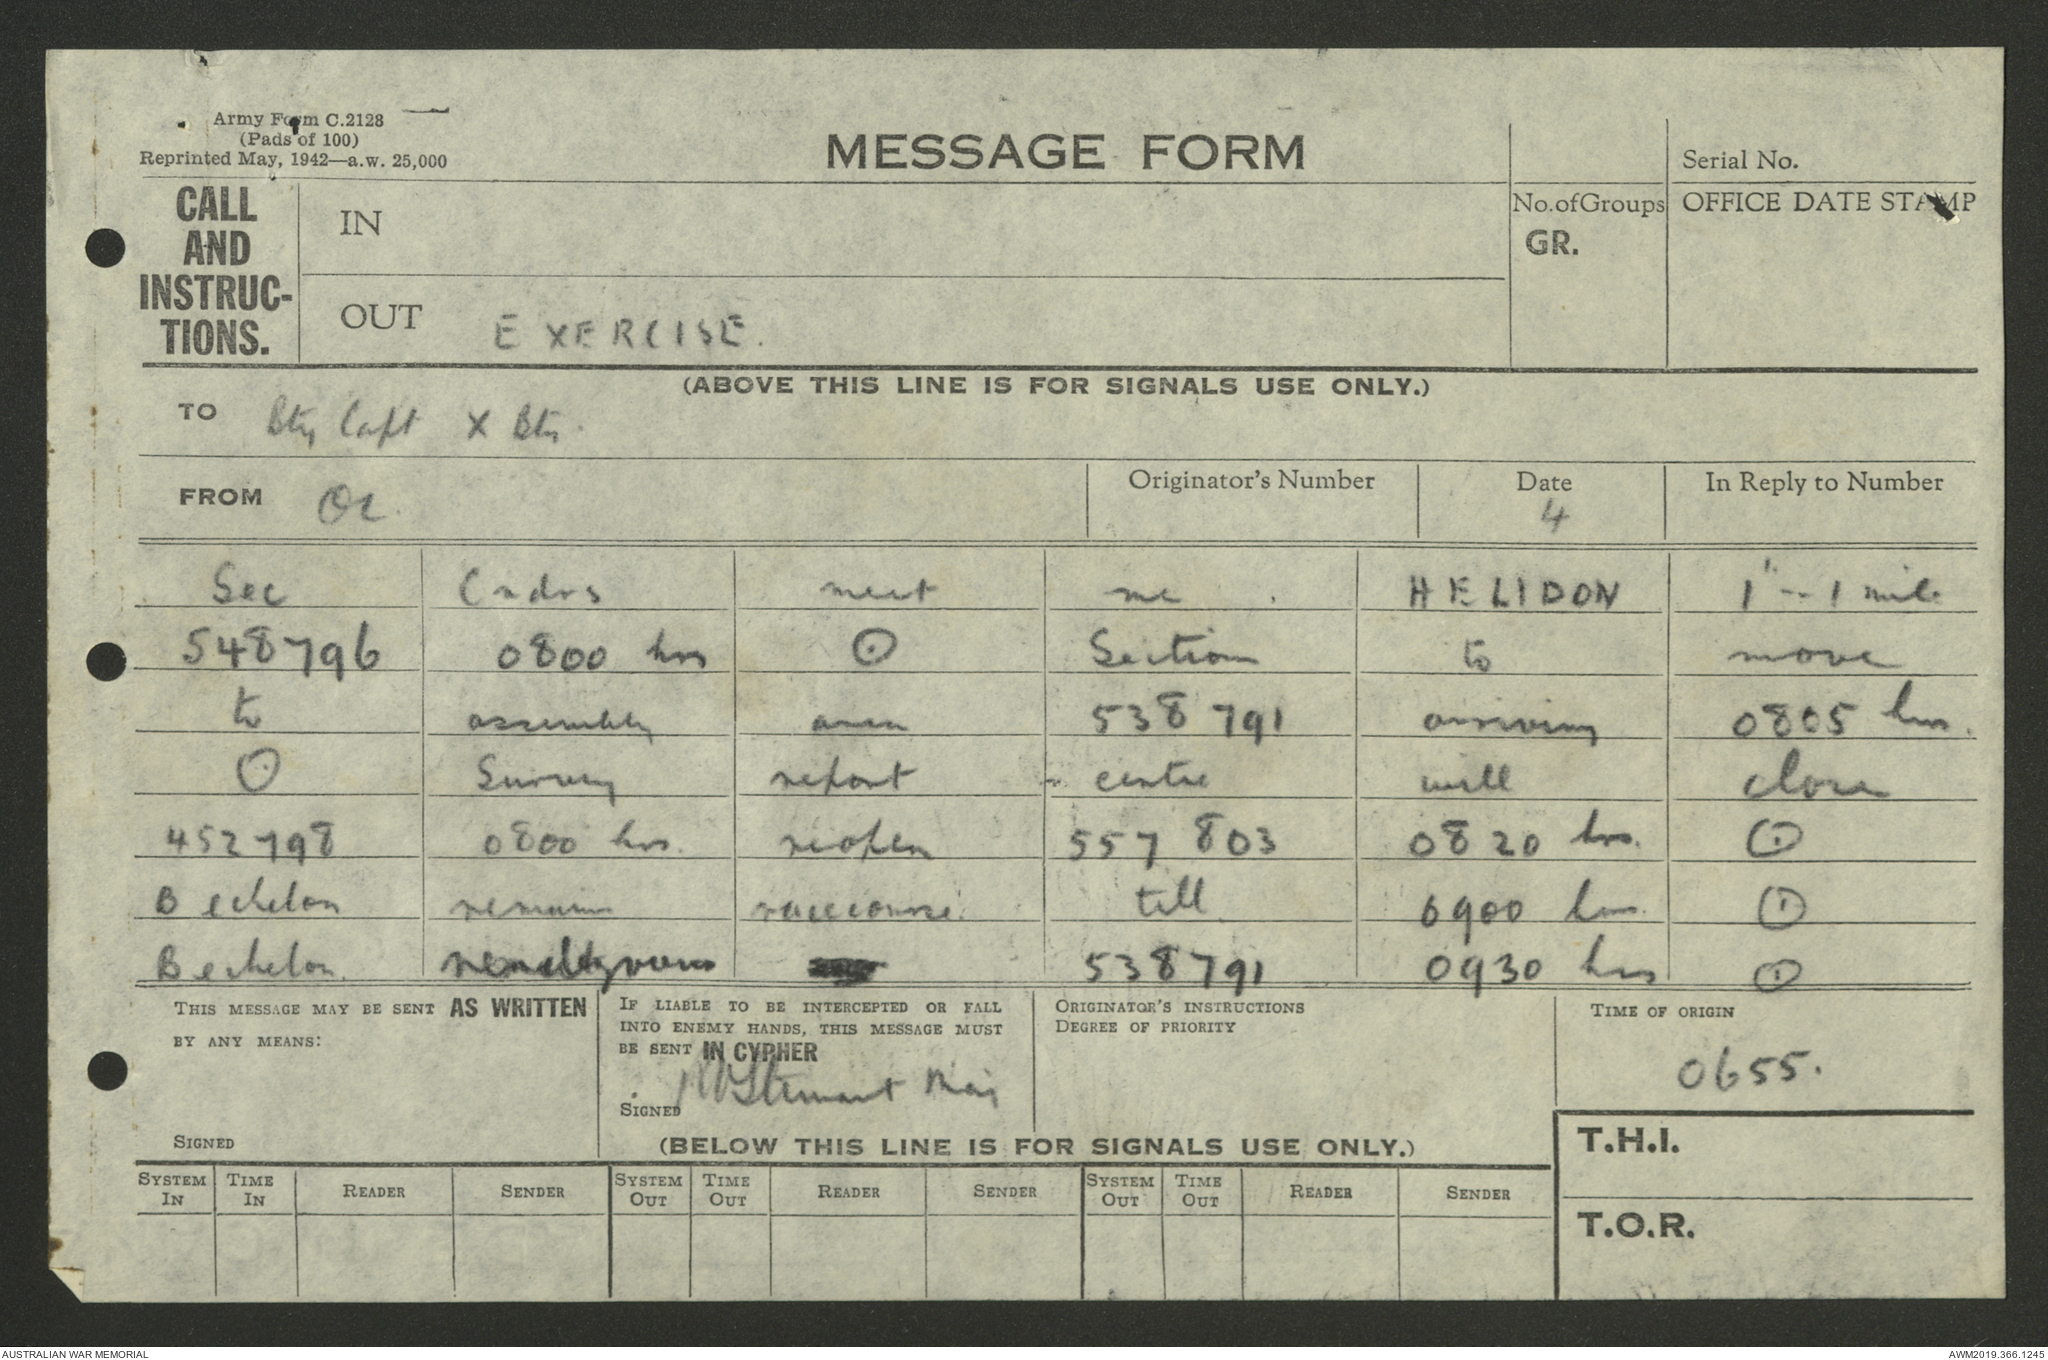 Army Form C.2128
(Pads of 100)
Reprinted May, 1942—a.w. 25,000
MESSAGE FORM
Serial No.
CALL AND INSTRUC-TIONS.
IN
No. of Groups
GR.
OFFICE DATE STAMP
OUT EXERCISE.
(ABOVE THIS LINE IS FOR SIGNALS USE ONLY.)
TO Bty Capt X Bty.
FROM OC.
Originator's Number
Date
4
In Reply to Number
Sec Cmdrs meet me HELIDON 1" - 1 mile
548796 0800 hrs ⊙ Section to move
to assembly area 538791 arriving 0805 hrs.
⊙ Survey report centre will close
452798 0800 hrs. reopen 557803 0820 hrs. ⊙
B echelon remain racecourse. till 0900 hrs. ⊙
B echelon. rendezvous 538791 0930 hrs ⊙
THIS MESSAGE MAY BE SENT AS WRITTEN
BY ANY MEANS:
SIGNED
IF LIABLE TO BE INTERCEPTED OR FALL
INTO ENEMY HANDS, THIS MESSAGE MUST
BE SENT IN CYPHER
SIGNED Stewart Maj
ORIGINATOR'S INSTRUCTIONS
DEGREE OF PRIORITY
TIME OF ORIGIN
0655.
(BELOW THIS LINE IS FOR SIGNALS USE ONLY.)
T.H.I.
T.O.R.
SYSTEM IN TIME IN READER SENDER SYSTEM OUT TIME OUT READER SENDER SYSTEM OUT TIME OUT READER SENDER
AUSTRALIAN WAR MEMORIAL
AWM2019.366.1245